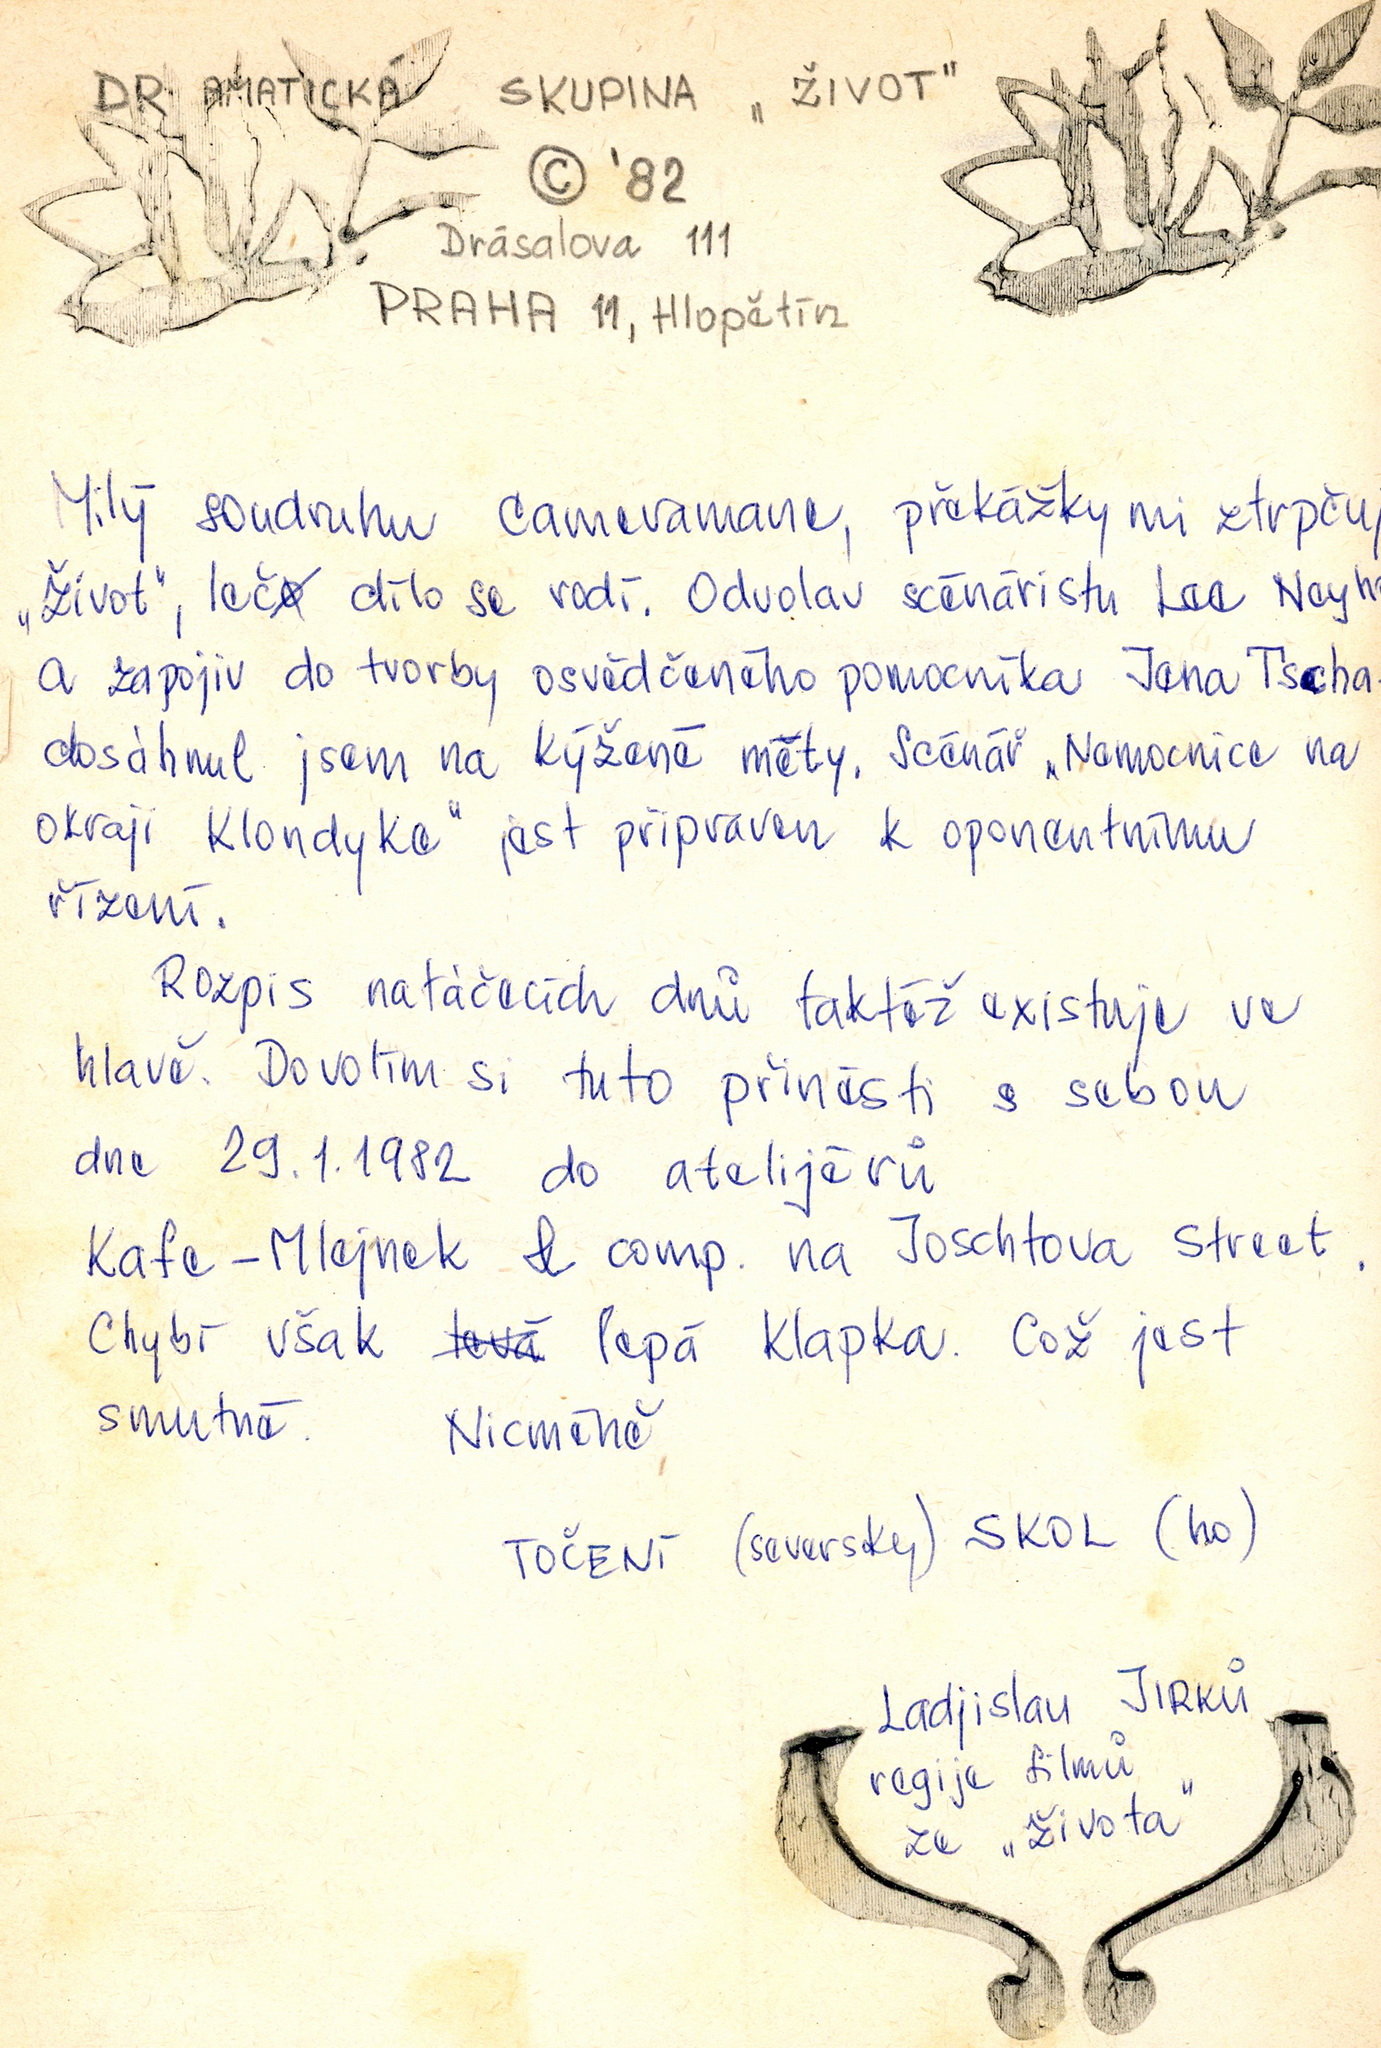 DRAMATICKÁ SKUPINA „ŽIVOT"
© '82
Drásalova 111
PRAHA 11, Hlopětín
Milý soudruhu cameramane, překážky mi ztrpčuj
„Život", leč dílo se rodí. Odvolav scénáristu Lee
a zapojiv do tvorby osvědčeného pomocníka Jena Tscha-
dosáhnul jsem na kýžené měty. Scénář „Nemocnice na
okraji Klondyke" jest připraven k oponentnímu
řízení.
Rozpis natáčecích dnů taktéž existuje ve
hlavě. Dovolím si tuto přinésti s sebou
dne 29.1.1982 do atelijérů
Kafe-Mlejnek & comp. na Joschtova Street.
Chybí však levá lepá klapka. Což jest
smutné. Nicméně
TOČENÍ (seversky) SKOL (ho)
Ladjislau JIRKŮ
regije filmů
ze „života"